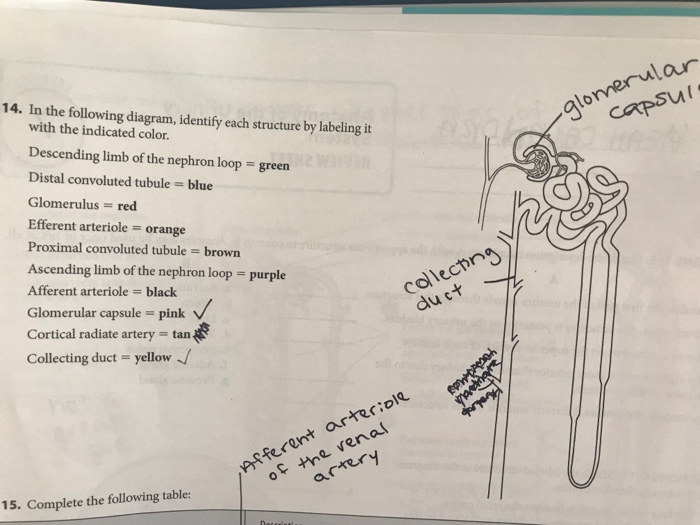 14. In the following diagram, identify each structure by labeling it
with the indicated color.
Descending limb of the nephron loop = green
Distal convoluted tubule = blue
Glomerulus = red
Efferent arteriole = orange
Proximal convoluted tubule = brown
Ascending limb of the nephron loop = purple
Afferent arteriole = black
Glomerular capsule = pink ✓
Cortical radiate artery = tan
Collecting duct = yellow ✓
glomerular
collecting
duct
Afferent arteriole
of the renal
artery
15. Complete the following table: